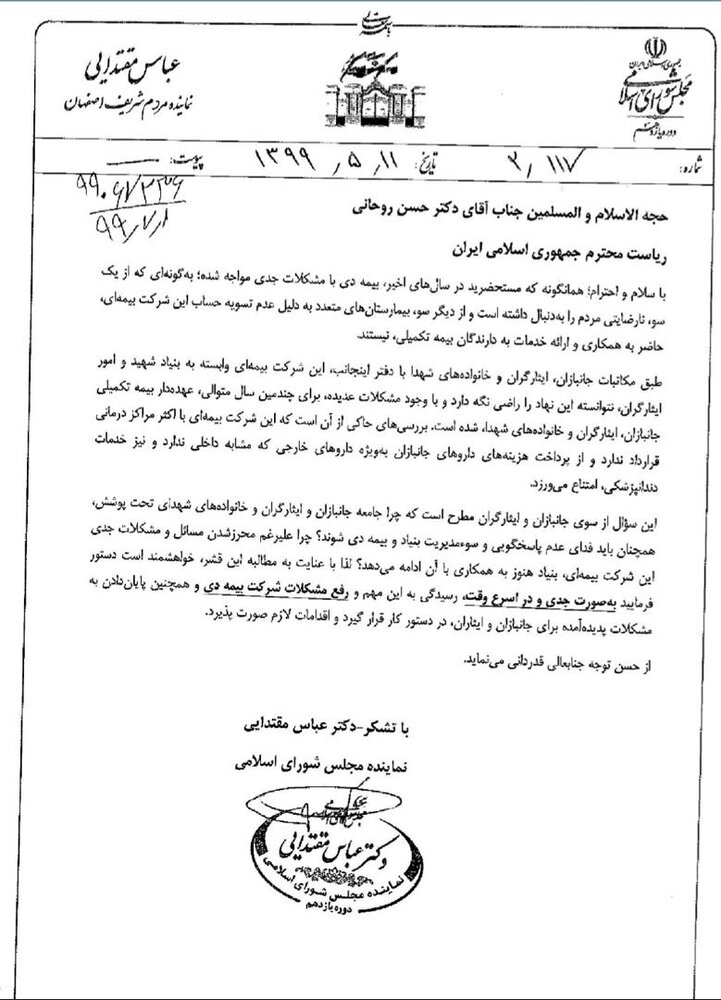 بسمه تعالی
جمهوری اسلامی ایران
مجلس شورای اسلامی
دوره یازدهم
عباس مقتدایی
نماینده مردم شریف اصفهان
شماره: ۳/۱۱۷
تاریخ: ۱۳۹۹/۵/۱۱
پیوست:
حجه الاسلام و المسلمین جناب آقای دکتر حسن روحانی
ریاست محترم جمهوری اسلامی ایران
با سلام و احترام؛ همانگونه که مستحضرید در سال‌های اخیر، بیمه دی با مشکلات جدی مواجه شده؛ به‌گونه‌ای که از یک
سو، نارضایتی مردم را به‌دنبال داشته است و از دیگر سو، بیمارستان‌های متعدد به دلیل عدم تسویه حساب این شرکت بیمه‌ای،
حاضر به همکاری و ارائه خدمات به دارندگان بیمه تکمیلی، نیستند.
طبق مکاتبات جانبازان، ایثارگران و خانواده‌های شهدا با دفتر اینجانب، این شرکت بیمه‌ای وابسته به بنیاد شهید و امور
ایثارگران، نتوانسته این نهاد را راضی نگه دارد و با وجود مشکلات عدیده، برای چندمین سال متوالی، عهده‌دار بیمه تکمیلی
جانبازان، ایثارگران و خانواده‌های شهدا، شده است. بررسی‌های حاکی از آن است که این شرکت بیمه‌ای با اکثر مراکز درمانی
قرارداد ندارد و از پرداخت هزینه‌های داروهای جانبازان به‌ویژه داروهای خارجی که مشابه داخلی ندارد و نیز خدمات
دندانپزشکی، امتناع می‌ورزد.
این سؤال از سوی جانبازان و ایثارگران مطرح است که چرا جامعه جانبازان و ایثارگران و خانواده‌های شهدای تحت پوشش،
همچنان باید فدای عدم پاسخگویی و سوءمدیریت بنیاد و بیمه دی شوند؟ چرا علیرغم محرزشدن مسائل و مشکلات جدی
این شرکت بیمه‌ای، بنیاد هنوز به همکاری با آن ادامه می‌دهد؟ لذا با عنایت به مطالبه این قشر، خواهشمند است دستور
فرمایید به‌صورت جدی و در اسرع وقت، رسیدگی به این مهم و رفع مشکلات شرکت بیمه دی و همچنین پایان‌دادن به
مشکلات پدیده‌آمده برای جانبازان و ایثاران، در دستور کار قرار گیرد و اقدامات لازم صورت پذیرد.
از حسن توجه جنابعالی قدردانی می‌نماید.
با تشکر-دکتر عباس مقتدایی
نماینده مجلس شورای اسلامی
مجلس شورای اسلامی
دکتر عباس مقتدایی
نماینده مجلس شورای اسلامی
دوره یازدهم